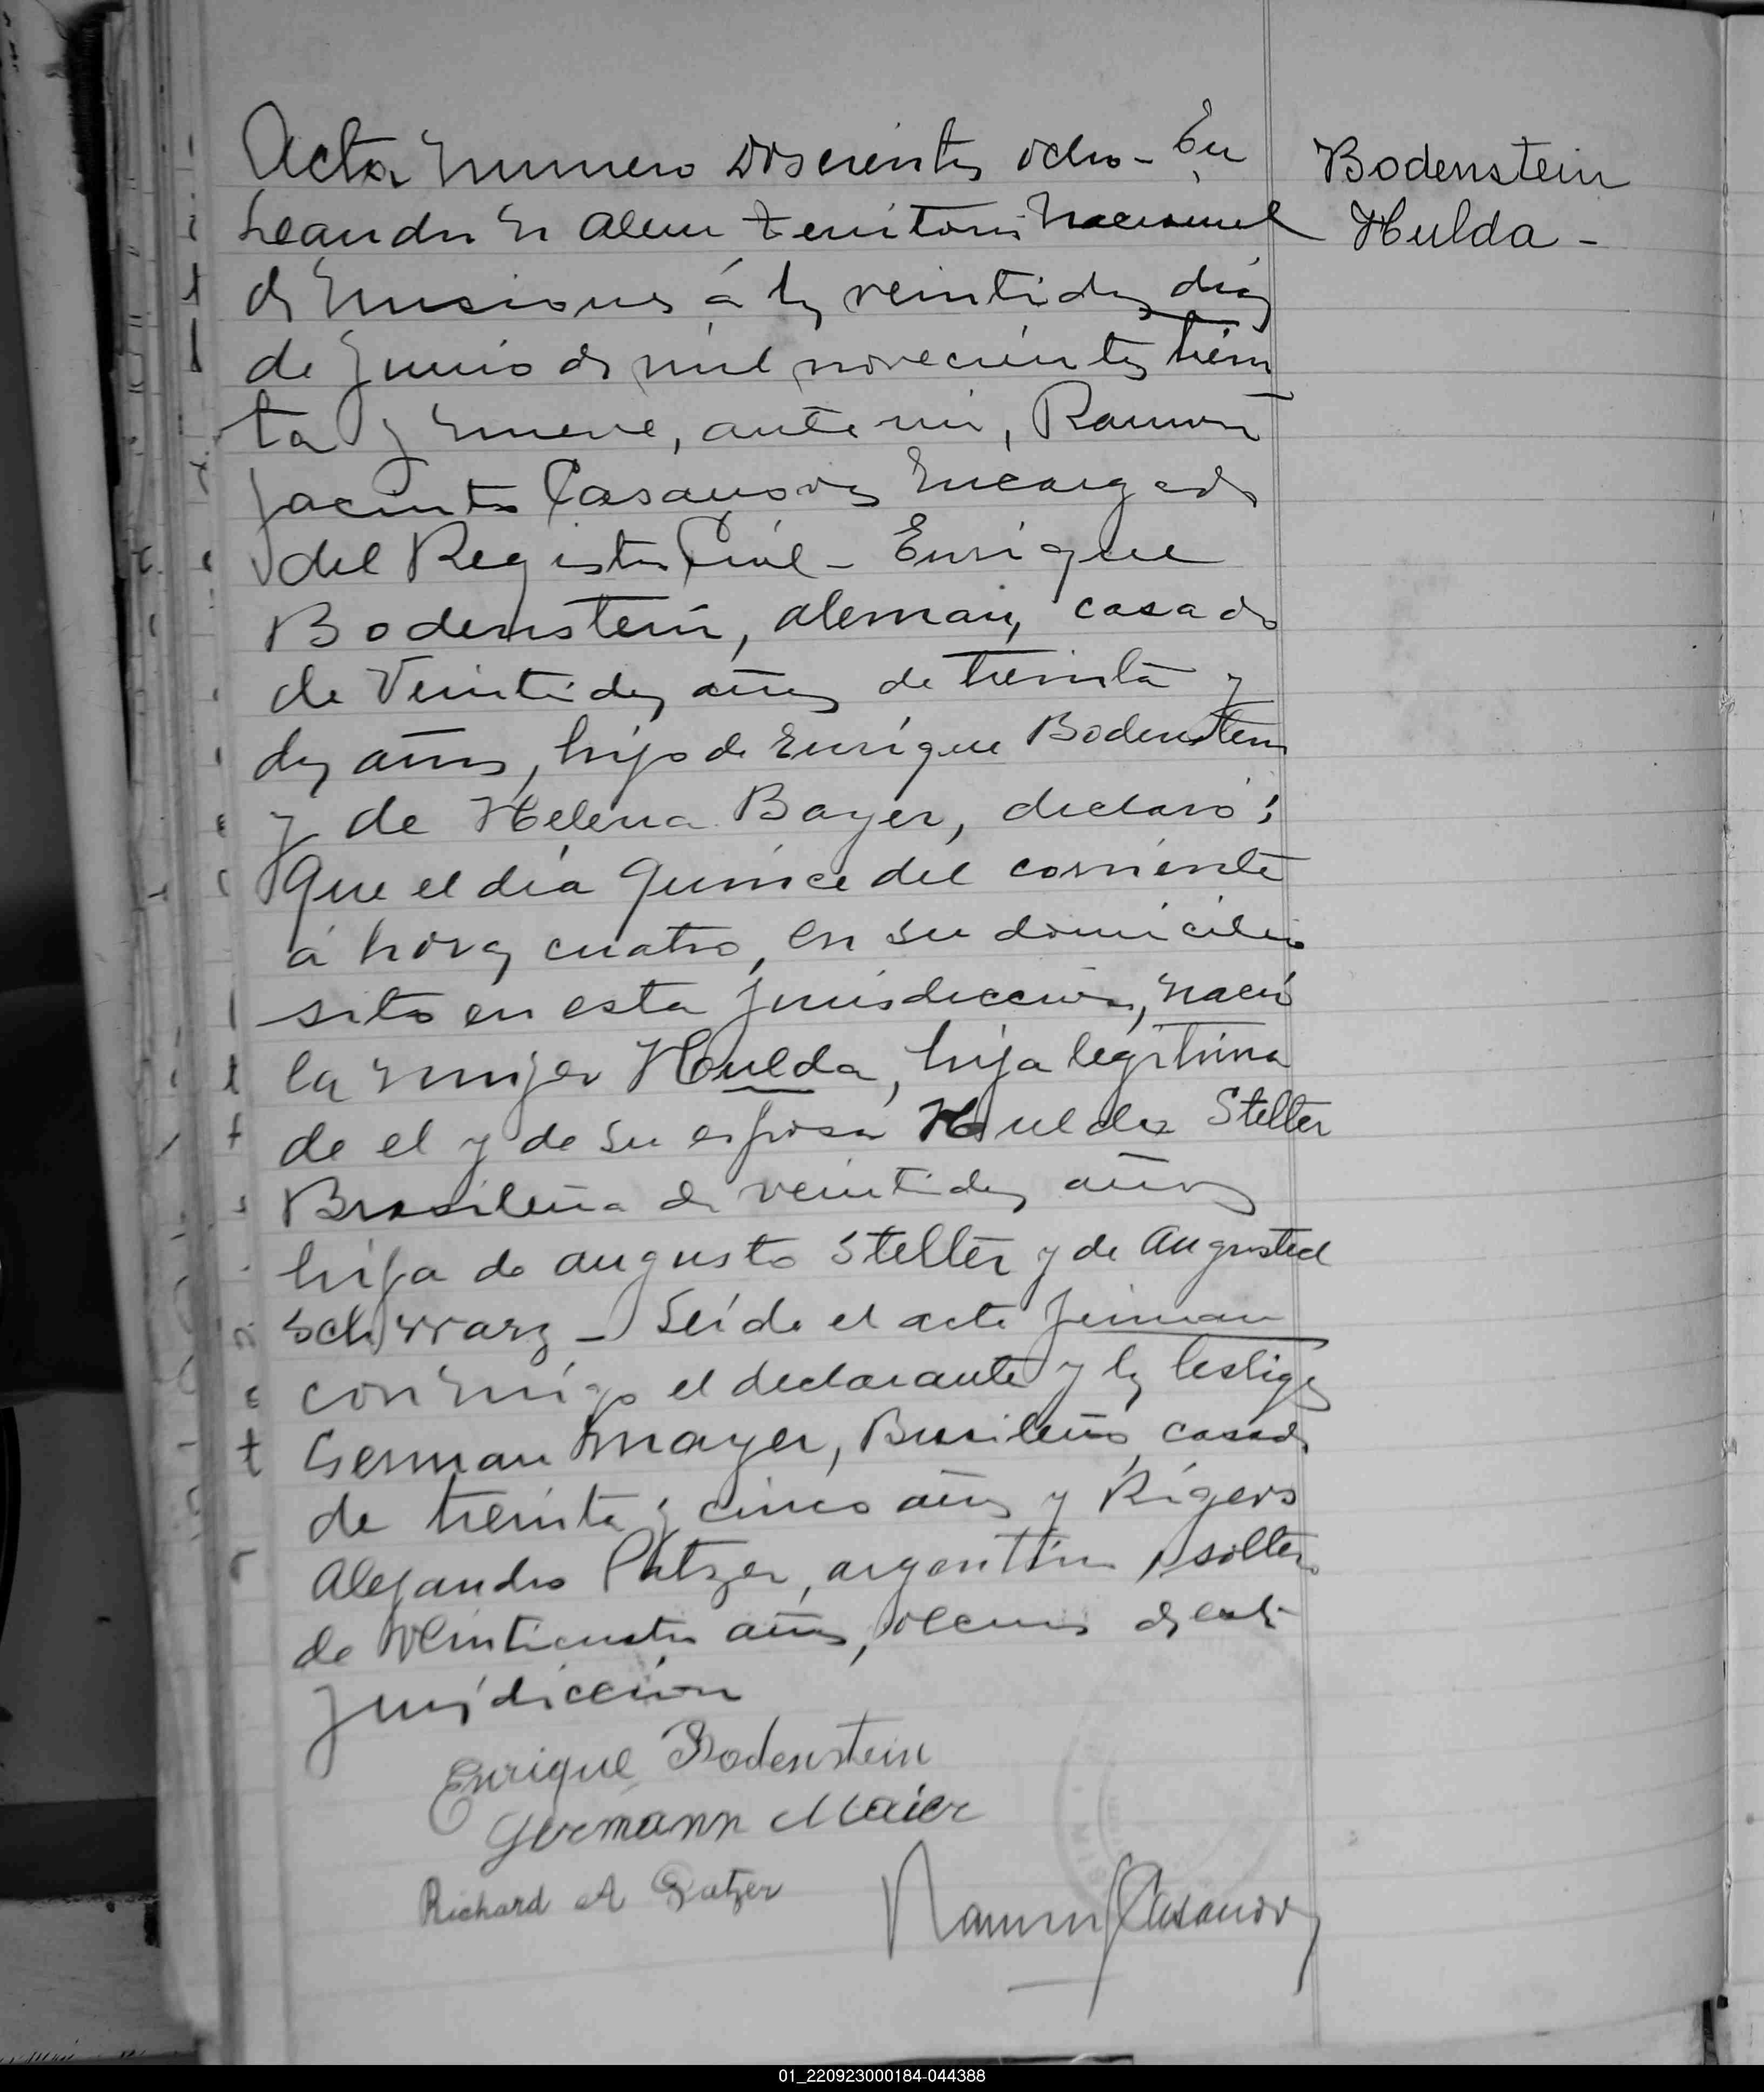 Acta Numero Doscientos ocho - En
Leandro N Alem Territorio Nacional
de Misiones á los veintidos dias
de Junio de mil novecientos trein
ta y nueve, ante mi, Ramon
Jacinto Casanova Encargado
del Registro Civil - Enrique
Bodenstein, aleman, casado
de Veintidos años de treinta y
dos años, hijo de Enrique Bodenstein
y de Helena Bayer, declaró:
Que el día Quince del corriente
á horas cuatro, en su domicilio
sito en esta Jurisdiccion, nació
la mujer Hulda, hija legitima
de el y de su esposa Hulda Stelter
Brasileña de veintidos años
hija de Augusto Stelter y de
Schwarz - Leída el acta firman
conmigo el declarante y los testigos
German Mayer, Brasileño, casado
de treinta y cinco años y
Alejandro Patzer, argentino, soltero
de veinticuatro años, vecinos de esta
Jurisdiccion
Enrique Bodenstein
Germann Maier
Richard A Patzer
Ramon J Casanova
Bodenstein
Hulda -
01_220923000184-044388